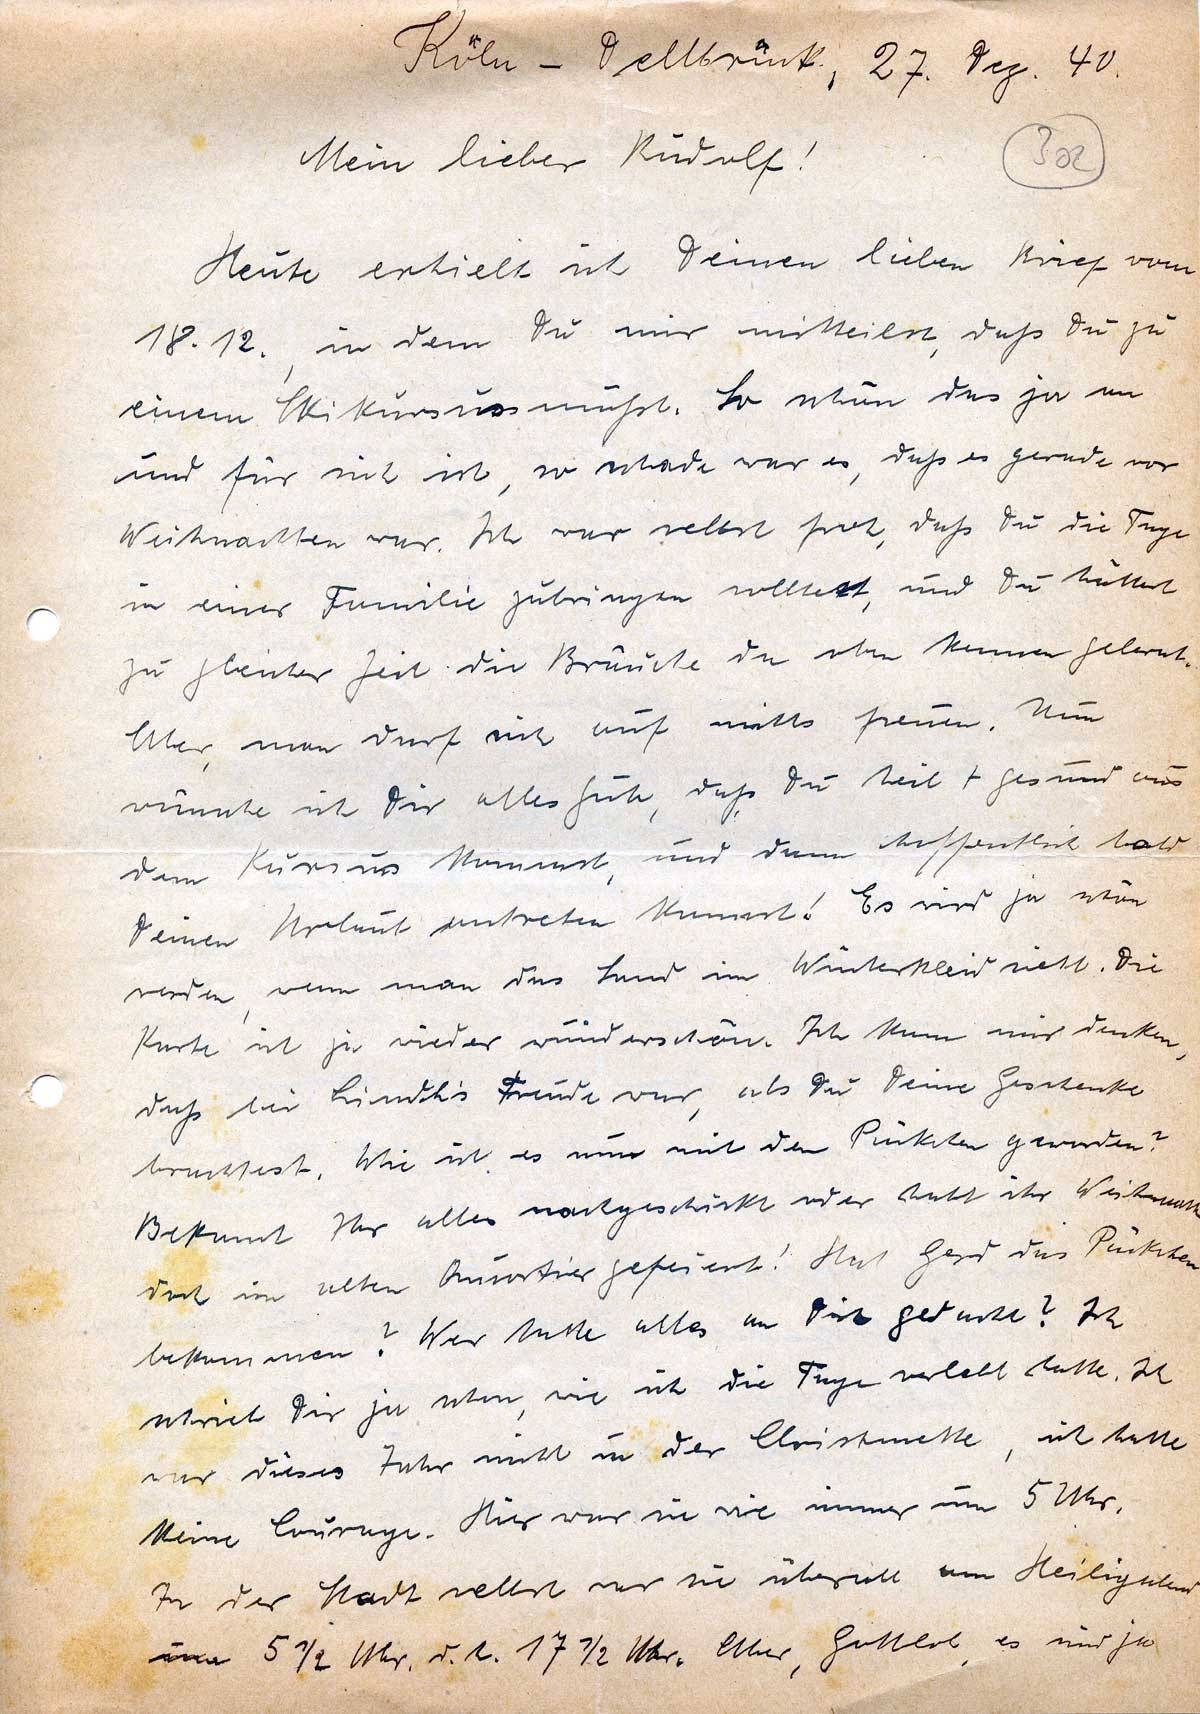 Köln – Dellbrück, 27. Dez. 40.
Mein lieber Rudolf!
302
Heute erhielt ich Deinen lieben Brief vom
18.12., in dem Du mir mitteilst, daß Du zu
einem Skikursus mußt. So schön das ja an
und für sich ist, so schade war es, daß es gerade vor
Weihnachten war. Ich war selbst froh, daß Du die Tage
in einer Familie zubringen solltest, und Du hättest
zu gleicher Zeit die Bräuche da oben kennen gelernt.
Aber, man darf sich auf nichts freuen. Nun
wünsche ich Dir alles Gute, daß Du heil + gesund aus
dem Kursus kommst, und dann hoffentlich bald
Deinen Urlaub antreten kannst! Es wird ja schön
werden, wenn man das Land im Winterkleid sieht. Die
Karte ist ja wieder wunderschön. Ich kann mir denken,
daß bei Freude war, als Du Deine Geschenke
brachtest. Wie ist es nun mit den Päckchen geworden?
Bekamt Ihr alles nachgeschickt oder habt ihr Weihnacht
doch im alten Quartier gefeiert! Hat Gerd das Päckchen
bekommen? Wer hatte alles an Dich gedacht? Ich
schrieb Dir ja schon, wie ich die Tage verlebt hatte. Ich
war dieses Jahr nicht in der Christmette, ich hatte
keine Courage. Hier war sie wie immer um 5 Uhr.
In der Stadt selbst war sie überall am Heiligabend
um 5 1/2 Uhr, d.h. 17 1/2 Uhr. Aber, Gottlob, es sind ja